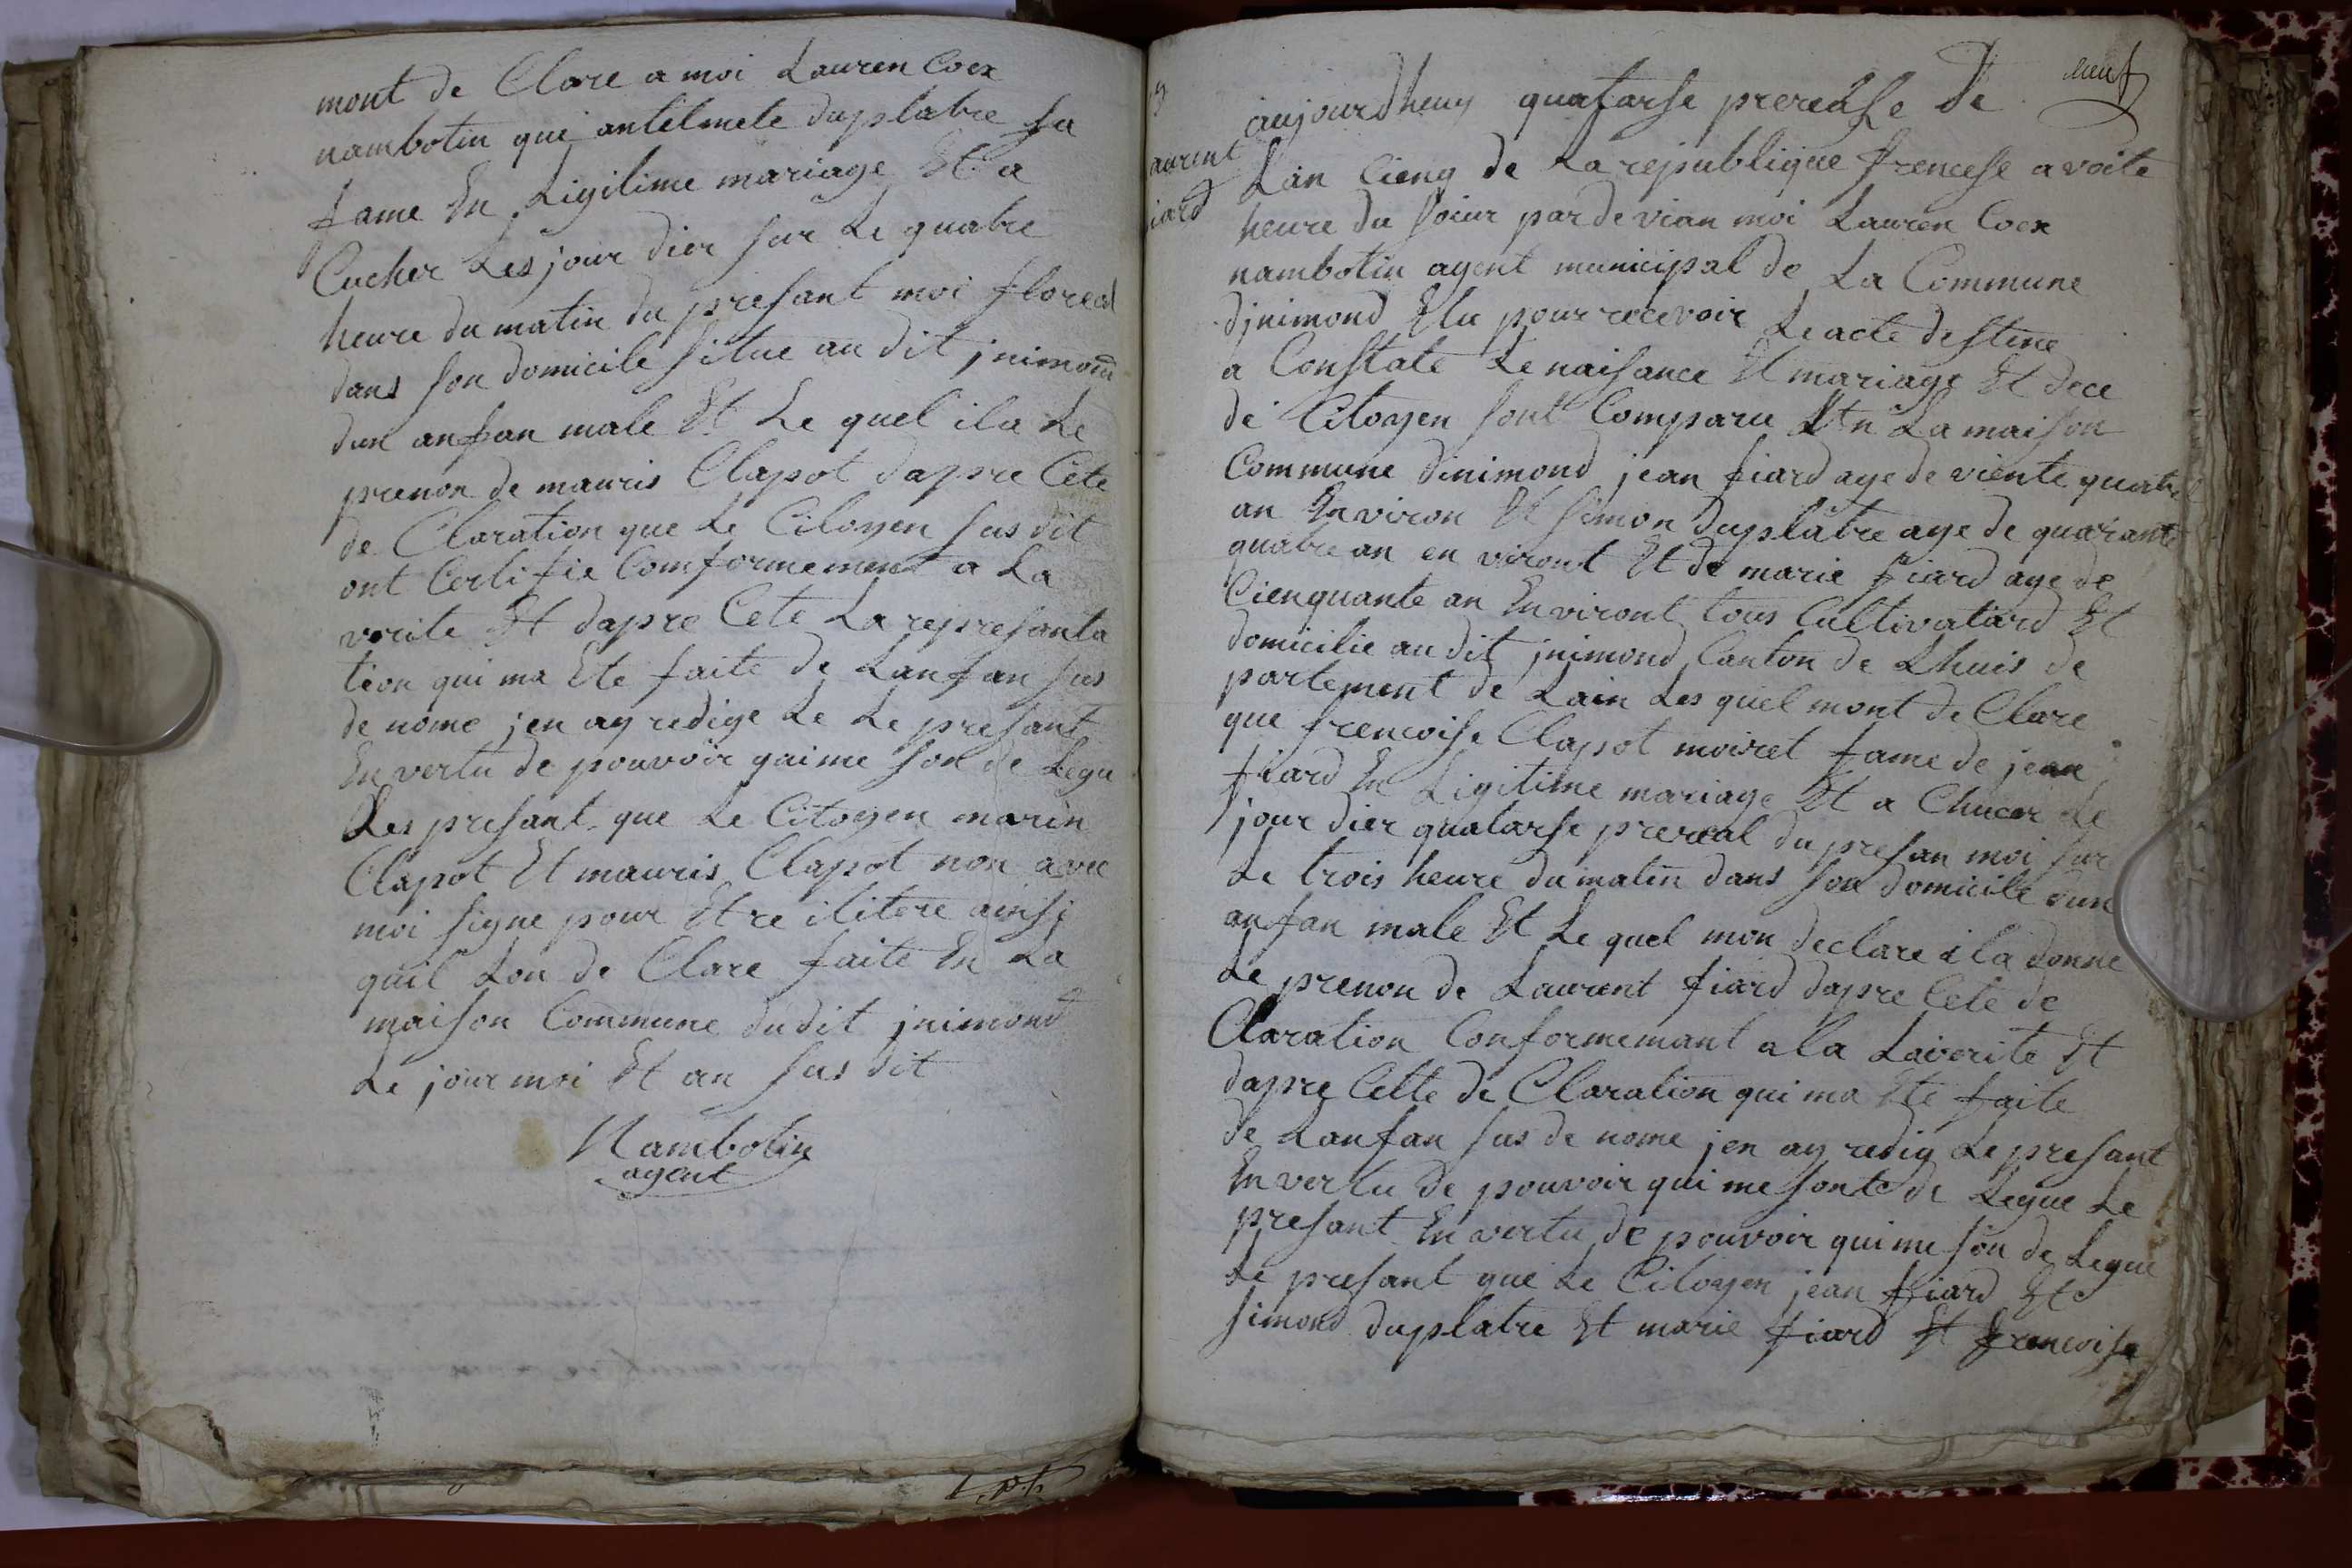 mont de Clare a moi Lauren Coex
nambotin qui antelmete duplatre sa
fame En Ligitime mariage Et a
Cucher Les jour dier sur Le quatre
heure du matin du presant moi floreal
dans son domicile situe au dit jnimond
dun anfan male Et Le quel il a Le
prenon de mauris Clapot dapre Cete
de Claration que Le Citoyen sus dit
ont Certifie Comformement a La
verite Et dapre Cete La represanta
tion qui ma Ete faite de Lanfan sus
de nome jen ay redige Le Le presant
En vertu de pouvoir qui me son de Legu
Les presant que Le Citoyen marin
Clapot Et mauris Clapot non avec
moi signe pour Etre ilitere ainsj
quil Lon de Clare faite En La
maison Commune du dit jnimond
Le jour moi Et an sus dit
Nambotin
agent
neuf
aurent
iard
aujourdheuy quatarse prerealse de
Lan Cienq de La republique francese a voite
heure du soiur par de vian moi Lauren Coex
nambotin agent municipal de La Commune
djnimond Elu pour recevoir Le acte destine
a Constate Le naisance Et mariage Et dece
de Citoyen sont Comparu En La maison
Commune dinimond jean fiard age de viente quatre
an Environ Et simon duplatre age de quarante
quatre an en viront Et de marie fiard age de
Cienquante an En viront tous Cultivatard Et
domicilie au dit jnimond Canton de Lhuis de
partement de Lain Les quel mont de Clare
que frencoise Clapot moiret fame de jean
fiard En Ligitime mariage Et a Chucer Le
jour dier quatarse prereal du presan moi sur
Le trois heure du matin dans son domicile dun
anfan male Et Le quel mon declare il a donne
Le prenon de Laurent fiard dapre Cete de
Claration Conformemant a la Laverite Et
dapre Cette de Claration qui ma Ete faite
de Lanfan sus de nome jen ay redig Le presant
En vertu de pouvoir qui me sonte de Legue Le
presant En vertu de pouvoir qui me son de Legue
Le presant que Le Citoyen jean fiard Et
simond duplatre Et marie fiard Et frencoise